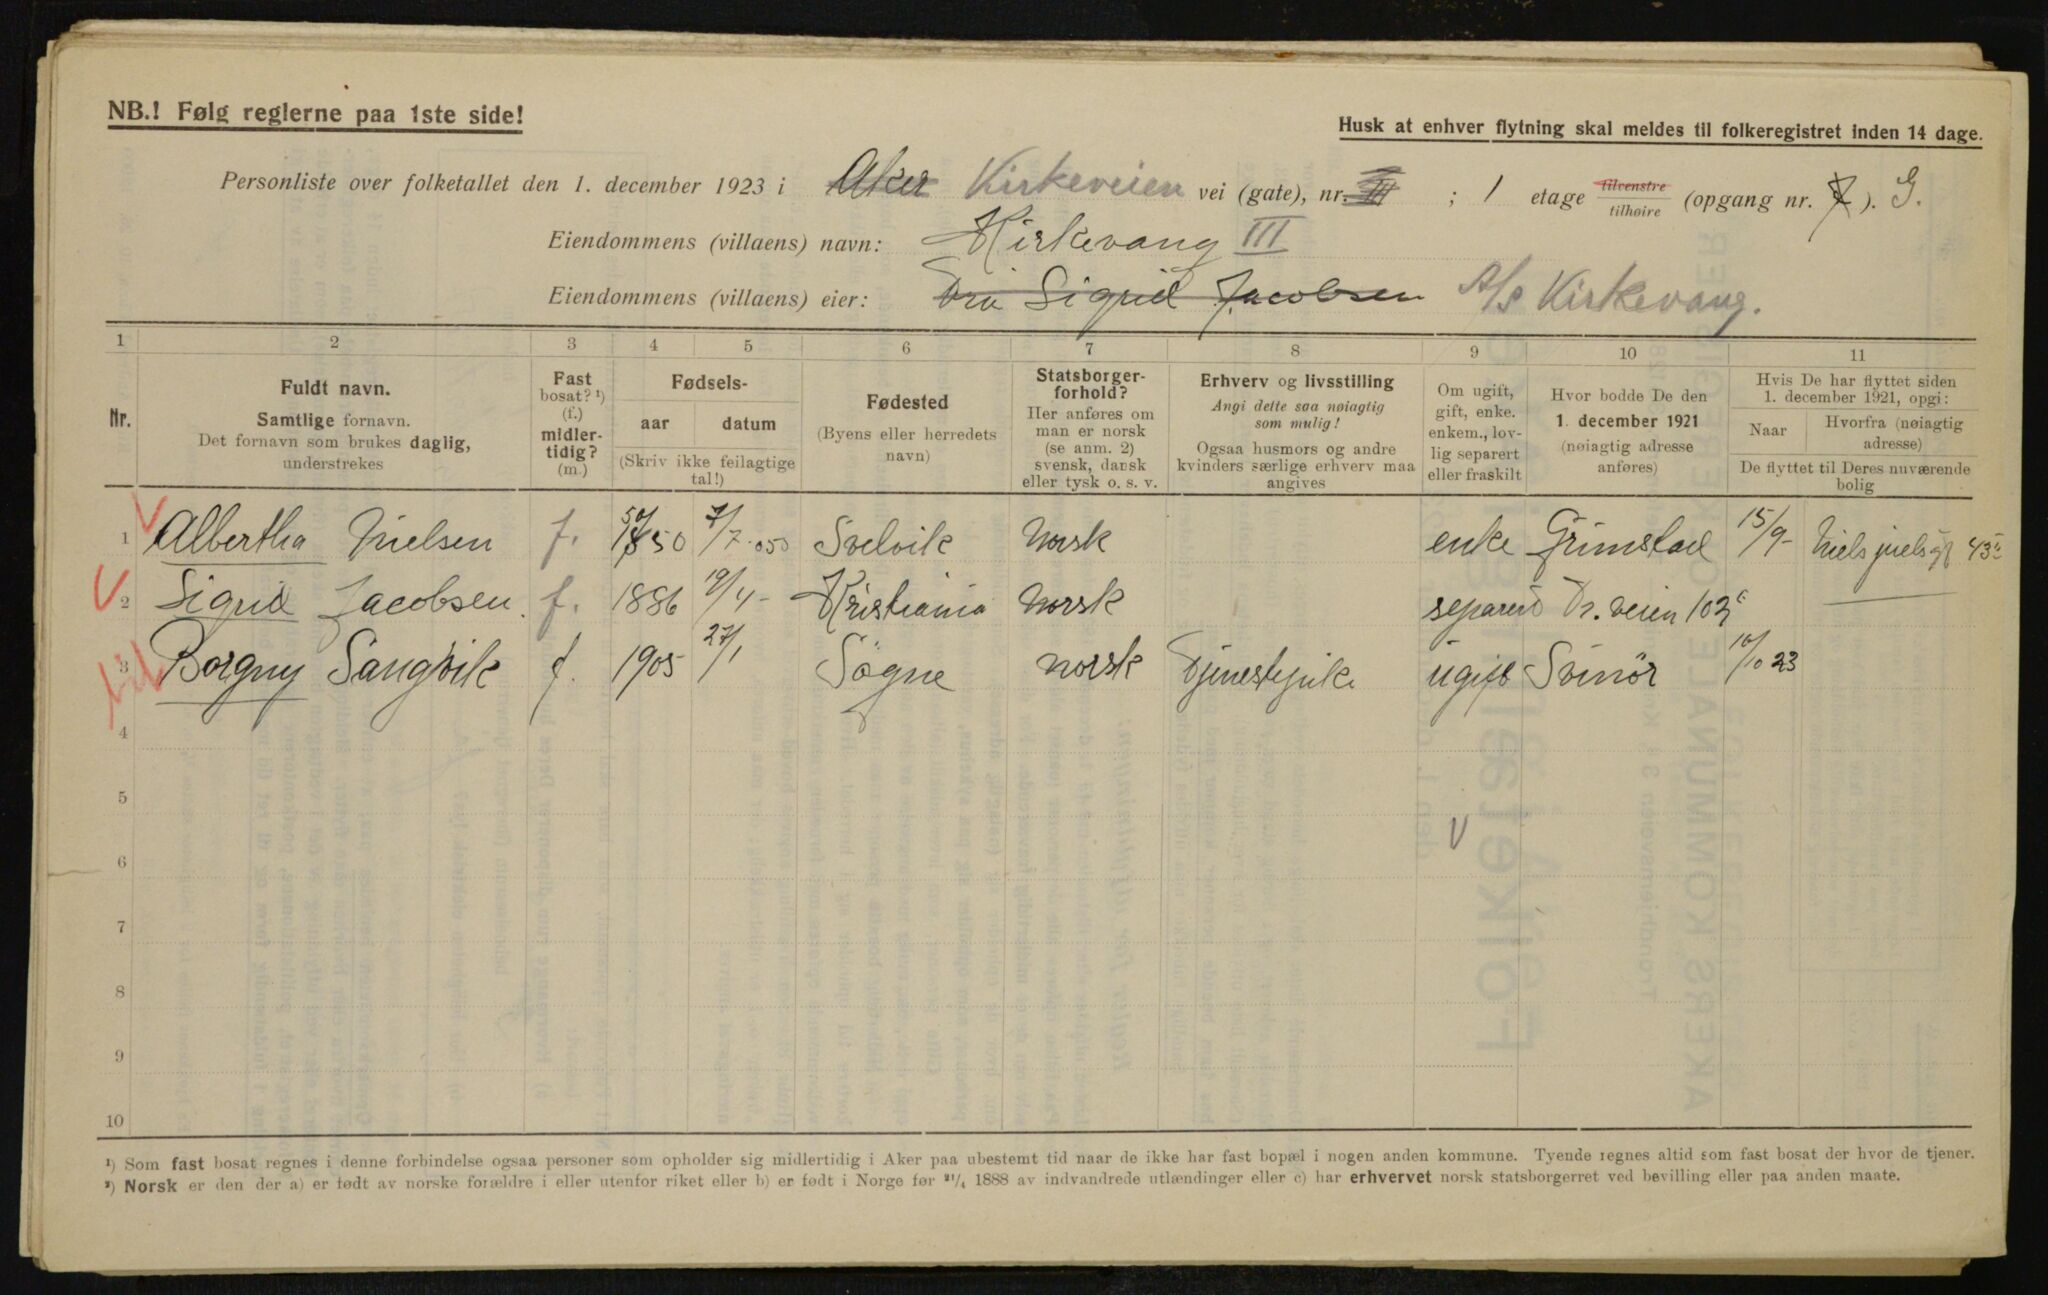 NB.! Følg reglerne paa 1ste side!
Husk at enhver flytning skal meldes til folkeregistret inden 14 dage.
Personliste over folketallet den 1. december 1923 i Aker Kirkeveien vei (gate), nr. III ; 1 etage tilvenstre tilhøire (opgang nr. 7). G.
Eiendommens (villaens) navn: Kirkevang III
Eiendommens (villaens) eier: Sigrid Jacobsen A/S Kirkevang.
1 2 3 4 5 6 7 8 9 10 11
Nr.
Fuldt navn.
Samtlige fornavn.
Det fornavn som brukes daglig,
understrekes
Fast
bosat? ¹)
(f.)
midler-
tidig?
(m.)
Fødsels-
aar datum
(Skriv ikke feilagtige
tal!)
Fødested
(Byens eller herredets
navn)
Statsborger-
forhold?
Her anføres om
man er norsk
(se anm. 2)
svensk, dansk
eller tysk o. s. v.
Erhverv og livsstilling
Angi dette saa nøiagtig
som mulig!
Ogsaa husmors og andre
kvinders særlige erhverv maa
angives
Om ugift,
gift, enke.
enkem., lov-
lig separert
eller fraskilt
Hvor bodde De den
1. december 1921
(nøiagtig adresse
anføres)
Hvis De har flyttet siden
1. december 1921, opgi:
Naar Hvorfra (nøiagtig
adresse)
De flyttet til Deres nuværende
bolig
1 Albertha Nielsen f. 1850 7/7 050 Svelvik Norsk enke Grimstad 15/9- Niels juelsgt 43
2 Sigrid Jacobsen. f. 1886 19/4- Kristiania Norsk separert Dr. veien 102
3 Borgny Sangvik f. 1905 27/1 Søgne norsk Tjenestepike ugift Svinör 10/10 23
4
5
6
7
8
9
10
¹) Som fast bosat regnes i denne forbindelse ogsaa personer som opholder sig midlertidig i Aker paa ubestemt tid naar de ikke har fast bopæl i nogen anden kommune. Tyende regnes altid som fast bosat der hvor de tjener.
²) Norsk er den der a) er født av norske forældre i eller utenfor riket eller b) er født i Norge før 21/4 1888 av indvandrede utlændinger eller c) har erhvervet norsk statsborgerret ved bevilling eller paa anden maate.